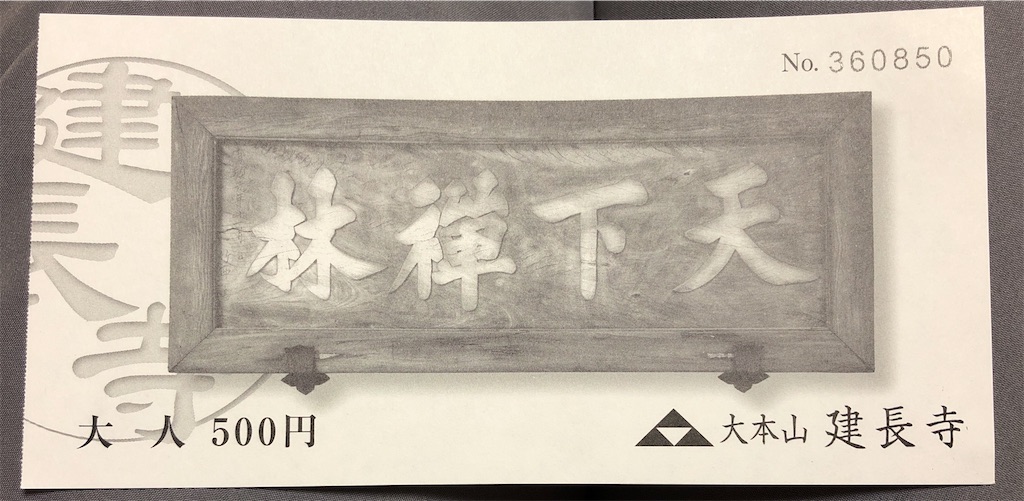 No. 360850
建長寺
林禅下天
大人 500円
大本山 建長寺